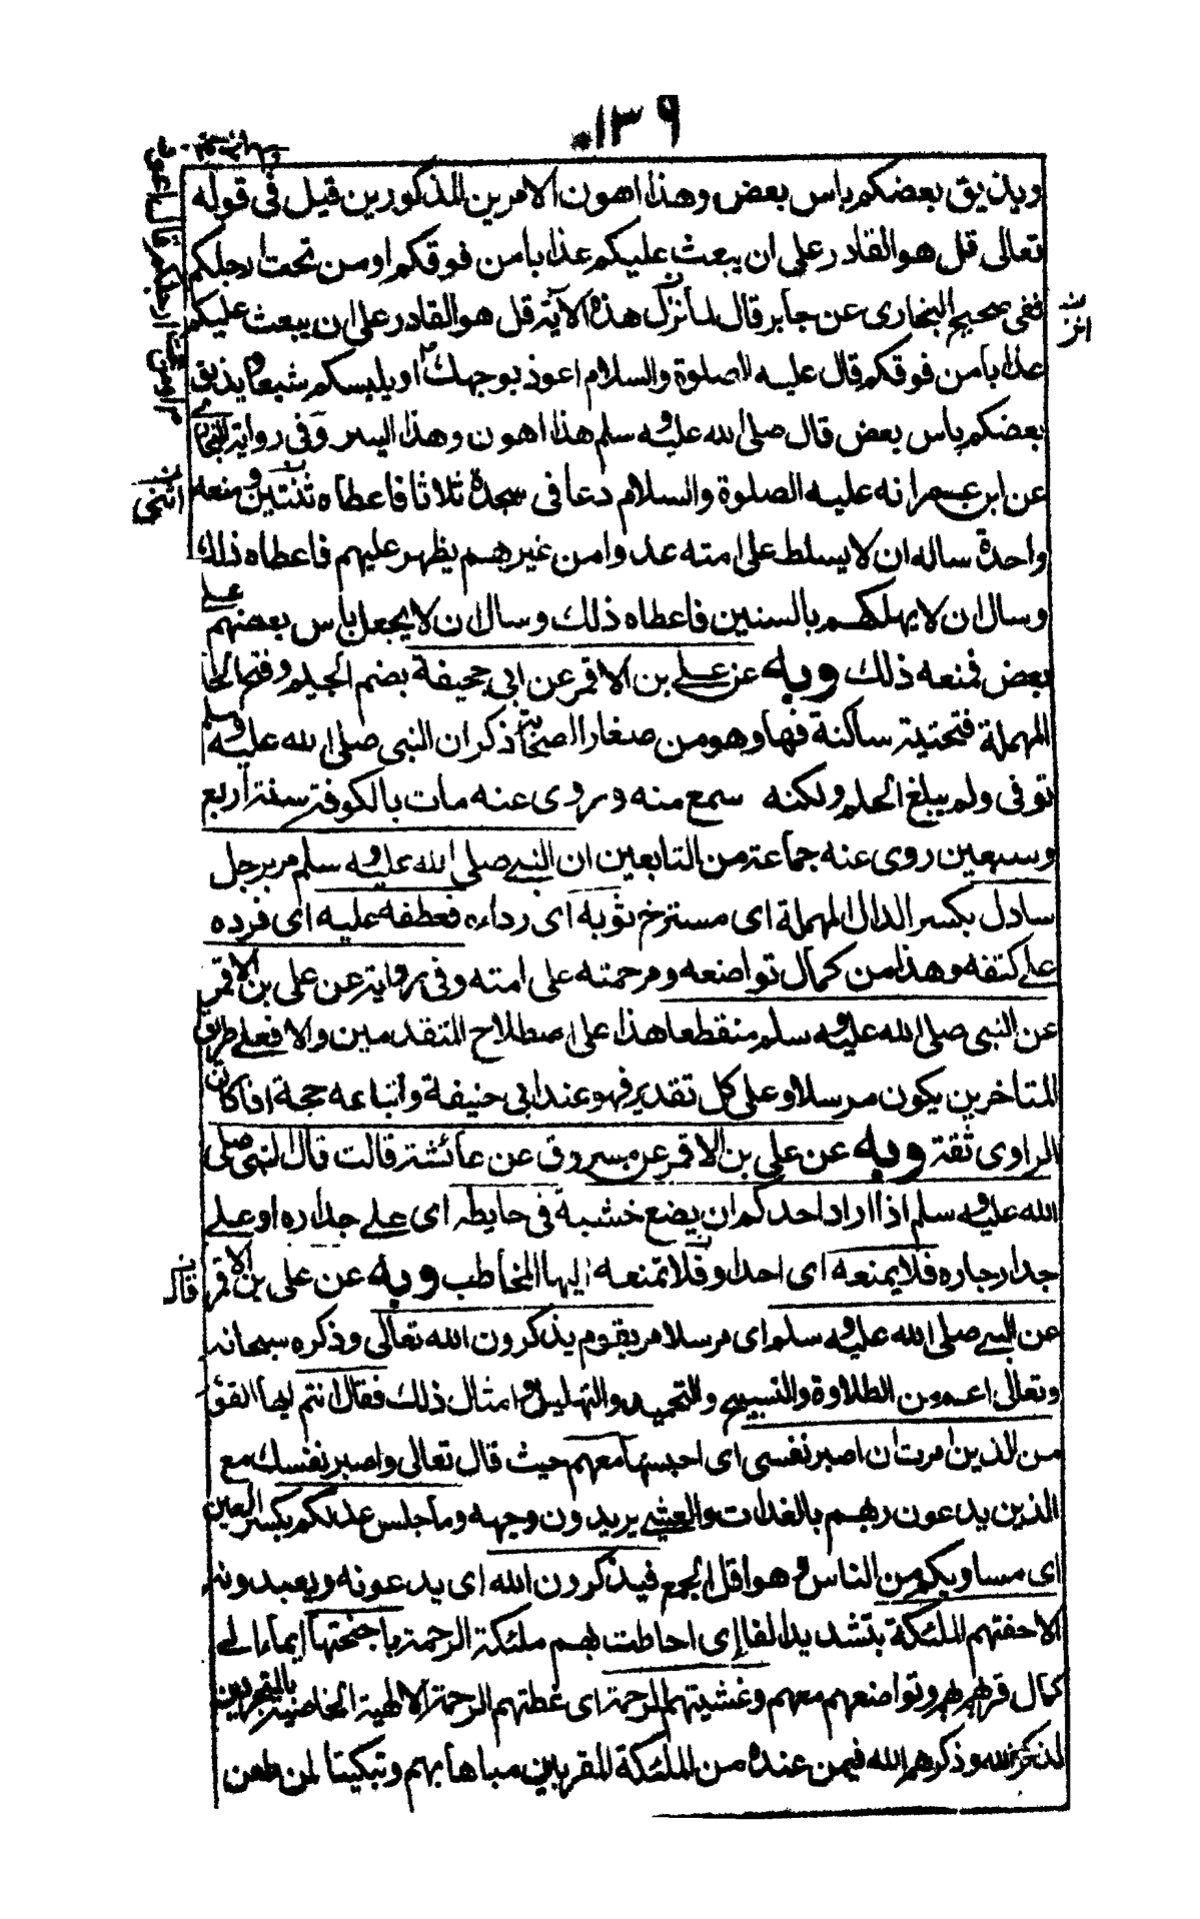 ١٣٩
ويذيق بعضكم باس بعض وهذا اهون الامرين المذكورين قيل فى قوله
تعالى قل هو القادر على ان يبعث عليكم عذابا من فوقكم او من تحت ارجلكم
ففى صحيح البخارى عن جابر قال لما نزلت هذه الآية قل هو القادر على ان يبعث عليكم
عذابا من فوقكم قال عليه الصلوة والسلام اعوذ بوجهك او يلبسكم شيعا ويذيق
بعضكم باس بعض قال صلى الله عليه وسلم هذا اهون وهذا ايسر وفى رواية البخارى
عن ابن عمر انه عليه الصلوة والسلام دعا فى سجدة ثلاثا فاعطاه ثنتين ومنعه
واحدة ساله ان لا يسلط على امته عدوا من غيرهم يظهر عليهم فاعطاه ذلك
وسال ان لا يهلكهم بالسنين فاعطاه ذلك وسال ان لا يجعل باس بعضهم على
بعض فمنعه ذلك وبه عن على بن الاقمر عن ابى جحيفة بضم الجيم وفتح الحا
المهملة فتحتية ساكنة ففا وهو من صغار الصحابة ذكر ان النبى صلى الله عليه وسلم
توفى ولم يبلغ الحلم ولكنه سمع منه وروى عنه مات بالكوفة سنة اربع
وسبعين روى عنه جماعة من التابعين ان النبى صلى الله عليه وسلم مر برجل
سادل بكسر الدال المهملة اى مسترخ ثوبه اى رداءه فعطفه عليه اى فرده
على كتفه وهذا من كمال تواضعه ومرحمته على امته وفى رواية عن على بن الاقمر
عن النبى صلى الله عليه وسلم منقطعا هذا على اصطلاح المتقدمين والا فعلى طريق
المتاخرين يكون مرسلا وعلى كل تقدير فهو عند ابى حنيفة واتباعه حجة اذا كان
الراوى ثقة وبه عن على بن الاقمر عن مسروق عن عائشة قالت قال النبى صلى
الله عليه وسلم اذا اراد احدكم ان يضع خشبة فى حايطه اى على جداره او على
جدار جاره فلا يمنعه اى احدا وفلا تمنعه ايها المخاطب وبه عن على بن الاقمر
عن النبى صلى الله عليه وسلم اى مرسلا مر بقوم يذكرون الله تعالى وذكره سبحانه
وتعالى اعم من الطلاوة والتسبيح والتحميد والتهليل وامثال ذلك فقال انتم ايها القوم
من الذين امرت ان اصبر نفسى اى احبسها معهم حيث قال تعالى واصبر نفسك مع
الذين يدعون ربهم بالغدات والعشى يريدون وجهه وما جلس عدلكم بكسر العين
اى مساويكم من الناس وهو اقل الجمع فيذكرون الله اى يدعونه ويعبدونه
الا حفتهم الملئكة بتشديد الفا اى احاطت بهم ملئكة الرحمة باجنحتها ايماء الى
كمال قربهم وتواضعهم معهم وغشيتهم الرحمة اى غطتهم الرحمة الالهية الخاصة
وذكرهم الله فيمن عنده من الملئكة المقربين مباهاة بهم وتبكيتا لمن طعن